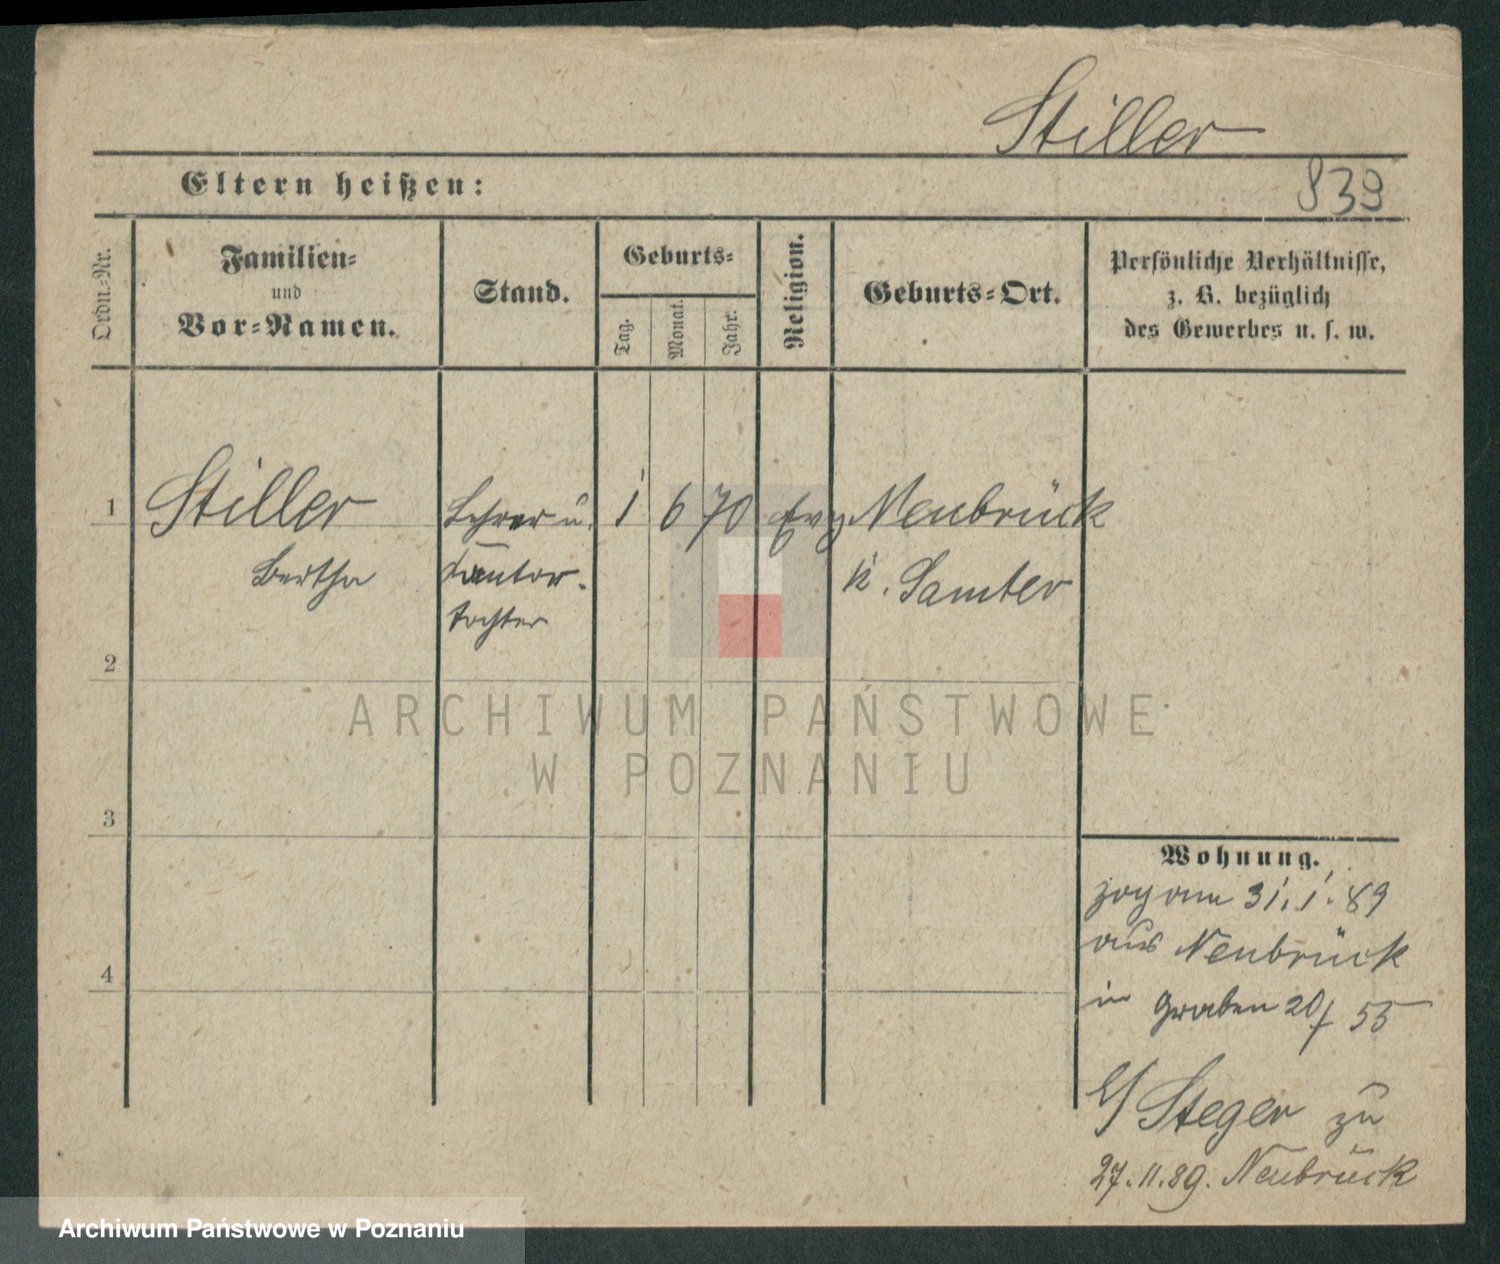 Stiller
Eltern heißen:
839
Ordn.-Nr.
Familien-
und
Vor-Namen.
Stand.
Geburts-
Tag.
Monat.
Jahr.
Religion.
Geburts-Ort.
Persönliche Verhältnisse,
z. B. bezüglich
des Gewerbes u. s. w.
1 Stiller Lehrer u. 1 6 70 Evg Neubrück
Bertha Cantor- K. Samter
tochter
2
ARCHIWUM PAŃSTWOWE
W POZNANIU
3
Wohnung.
zog am 31.1.89
aus Neubrück
4
in Graben 20/ 55
b/ Steger zu
27.11.89. Neubrück
Archiwum Państwowe w Poznaniu